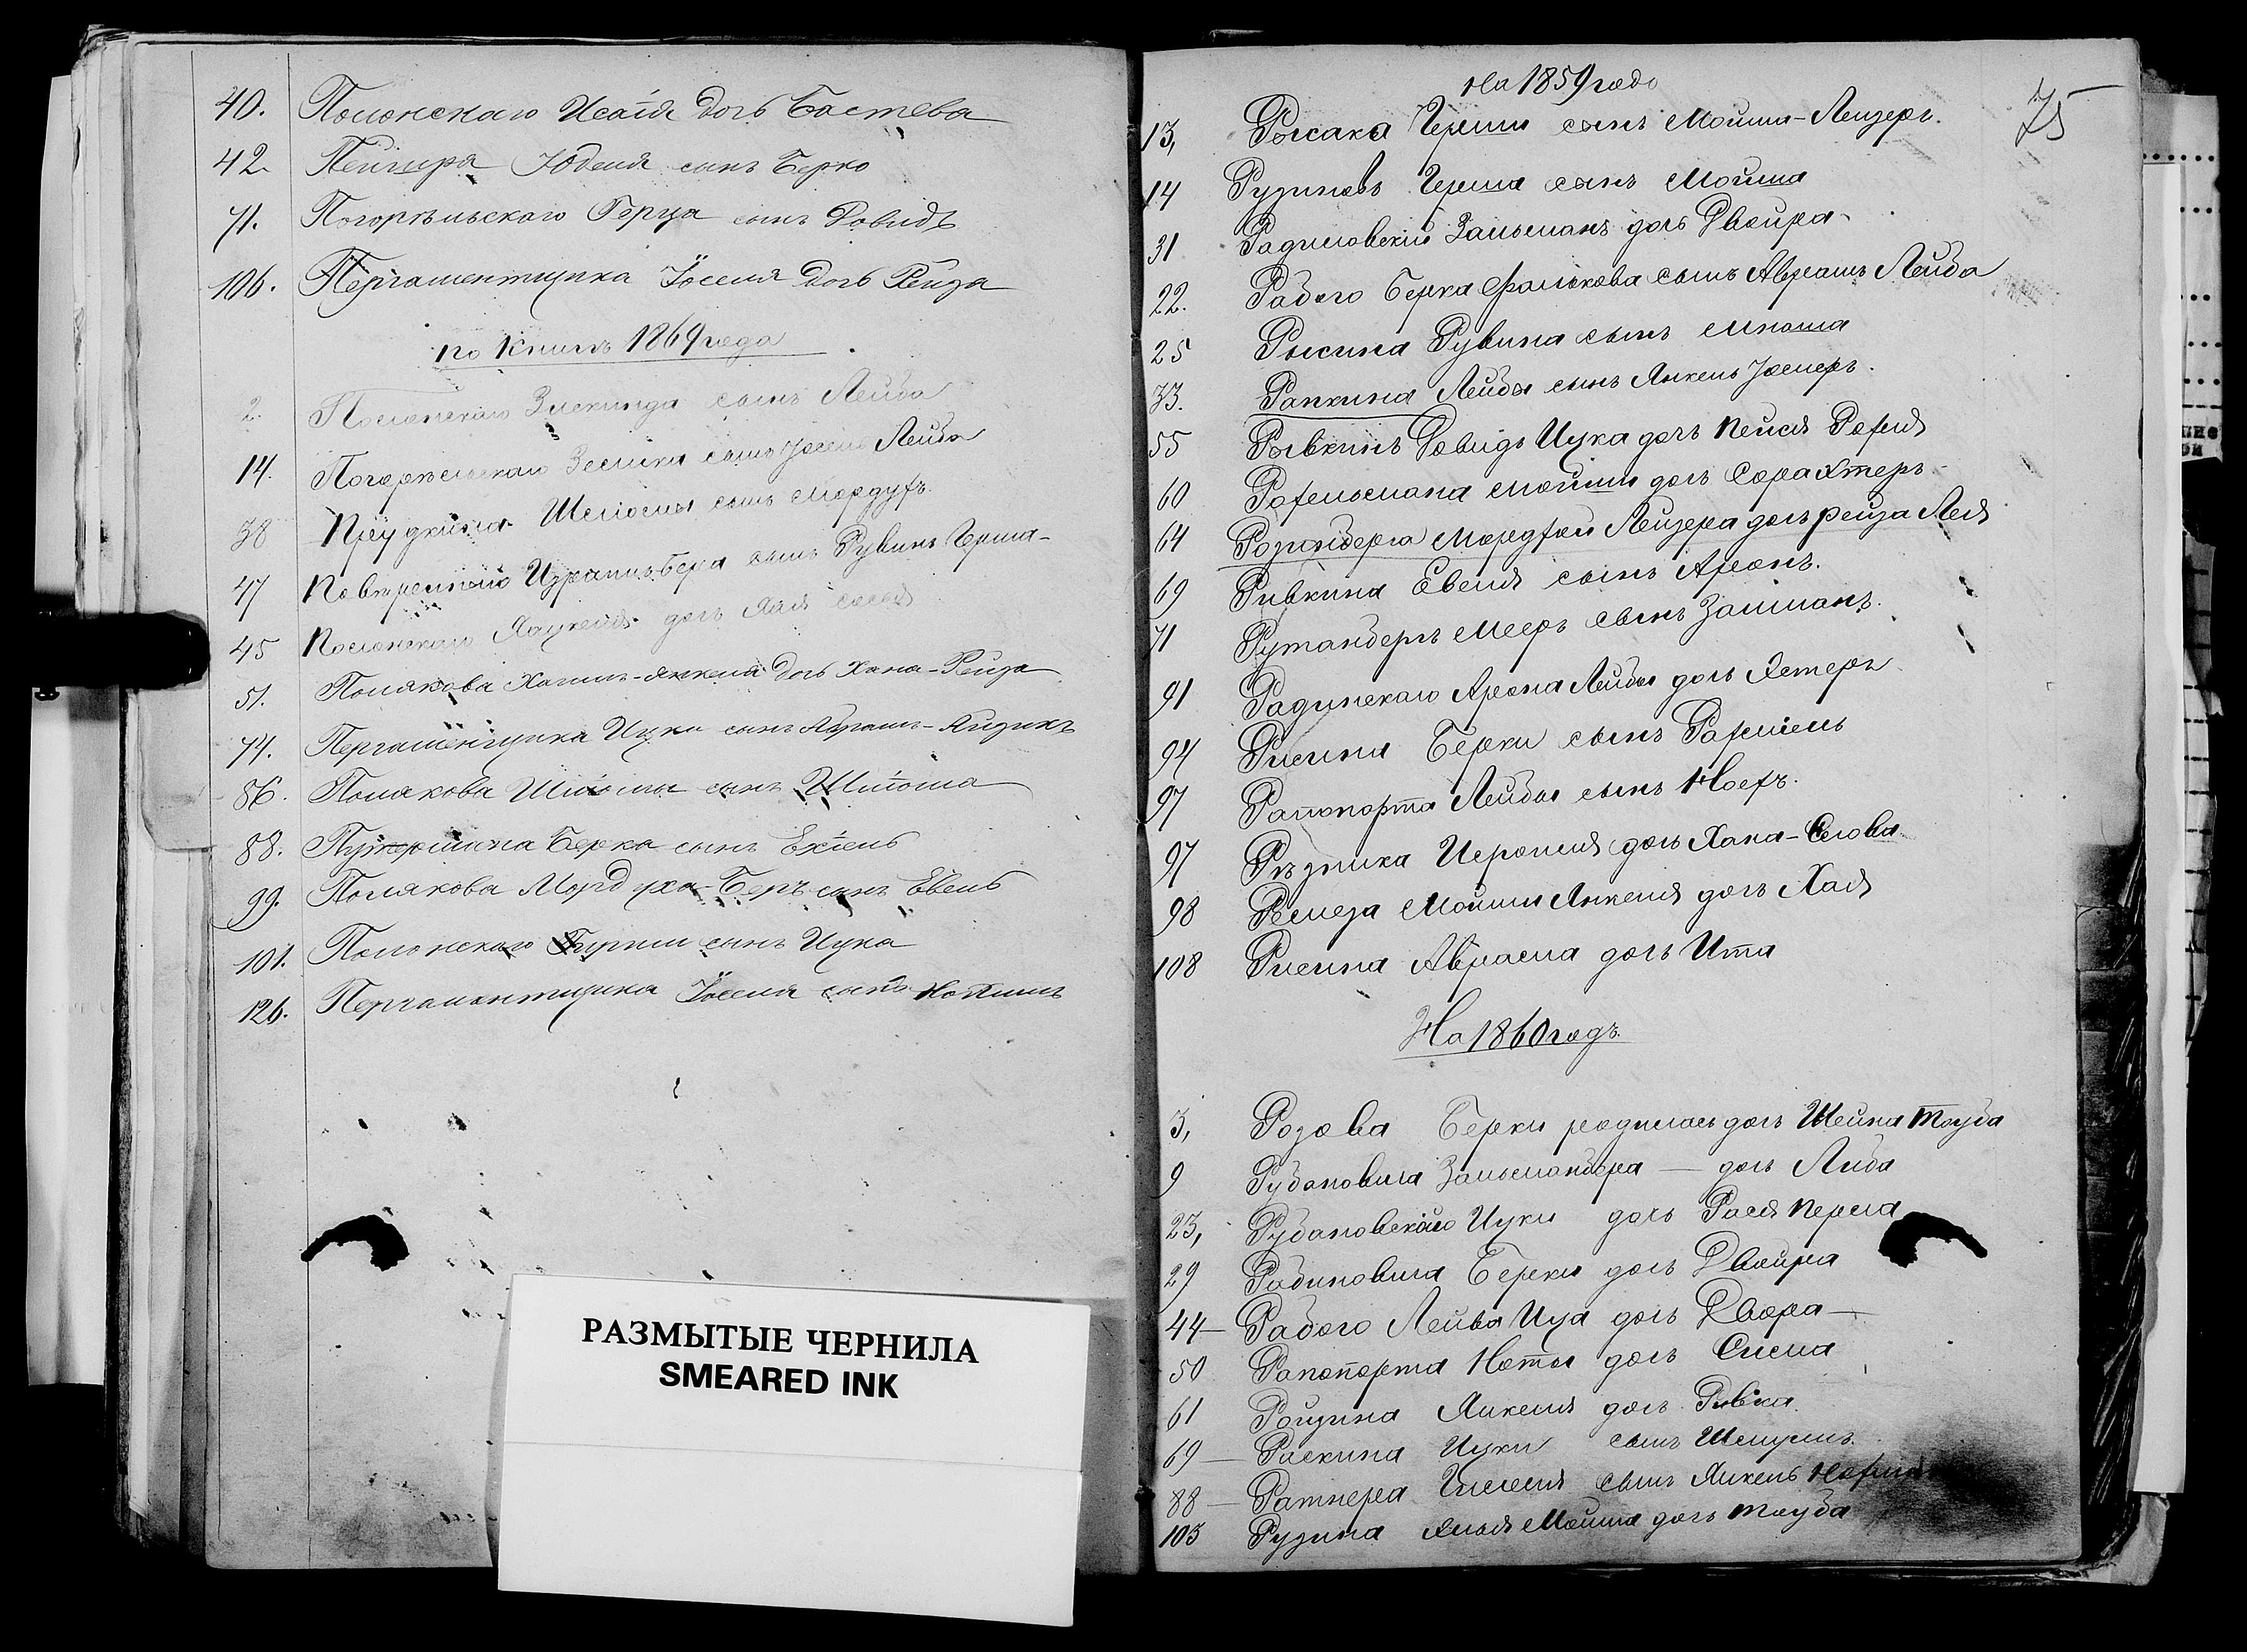 40. Полонскаго Исаія дочь Бастева
42. Пейсира Юделя сынъ Берко
71. Погорѣльскаго Герца сынъ Довидъ
106. Пергаментщика Іоселя дочь Рейза
по книгѣ 1869 года
2. Полонскаго Зискинда сынъ Лейба
14. Погорѣльскаго Зелика сынъ Іосель Лейба
38 Прудкина Шеліомы сынъ Мордухъ
47 Израиль бера сынъ Рувинъ Герша
45 Полонскаго Хацкеля дочь Хая
51. Полякова Хаимъ-Янкеля дочь Хана-Рейза
74. Пергаменщика Ицки сынъ Абрамъ-Айзикъ
86. Полякова Шліомы сынъ Шліома
88. Берка сынъ Ехіель
99. Полякова Мордуха-Беръ сынъ Евель
101. Полонскаго сынъ Ицка
126. Пергаментщика Іоселя сынъ
На 1859 годъ
75
13, Рысака Герши сынъ Мойша-Лейзеръ.
14 Рузиновъ Герша сынъ Мойша
31 Радиловскій Зальманъ дочь Двейра
22. Рабого Берка Фалькова сынъ Абрамъ Лейба
25 Рысина Рувина сынъ
33. Рапкина Лейбы сынъ Янкель
55 Рывкинъ Довидъ Ицка дочь Пейся Рохля
60 Рохельмана Мойши дочь Сора Эстеръ
64 Розинберга Мордхай Лейзера дочь Рейза Лея
69 Ривкина Евеля сынъ Аронъ.
71 Рутанбергъ Мееръ сынъ Залманъ.
91 Радинскаго Арона Лейбы дочь Эстеръ
94 Рисина Берки сынъ Рахміель
97 Рапопорта Лейбы сынъ Ноехъ.
97 Рѣзника дочь Хана-Слова
98 Ремеза Мойши Янкеля дочь Хая
108 Рисина Абрама дочь Ита
На 1860 годъ.
3, Розова Берки родилась дочь Шейна Тауба
9 Рубановича Зальманбера — дочь Либа
23, Рубановскаго Ицки дочь Рася Перла
29 Рабиновича Берки дочь Двейра
44 — Рабого Лейба Ица дочь Двора —
50 Рапопорта Ноты дочь Сима
61 Рощина Янкеля дочь Ривка.
69 — Раскина Ицки сынъ Шмуель.
88 — Ратнера Гилеля сынъ Янкель
103 Рузина Мойша дочь Тауба
РАЗМЫТЫЕ ЧЕРНИЛА
SMEARED INK